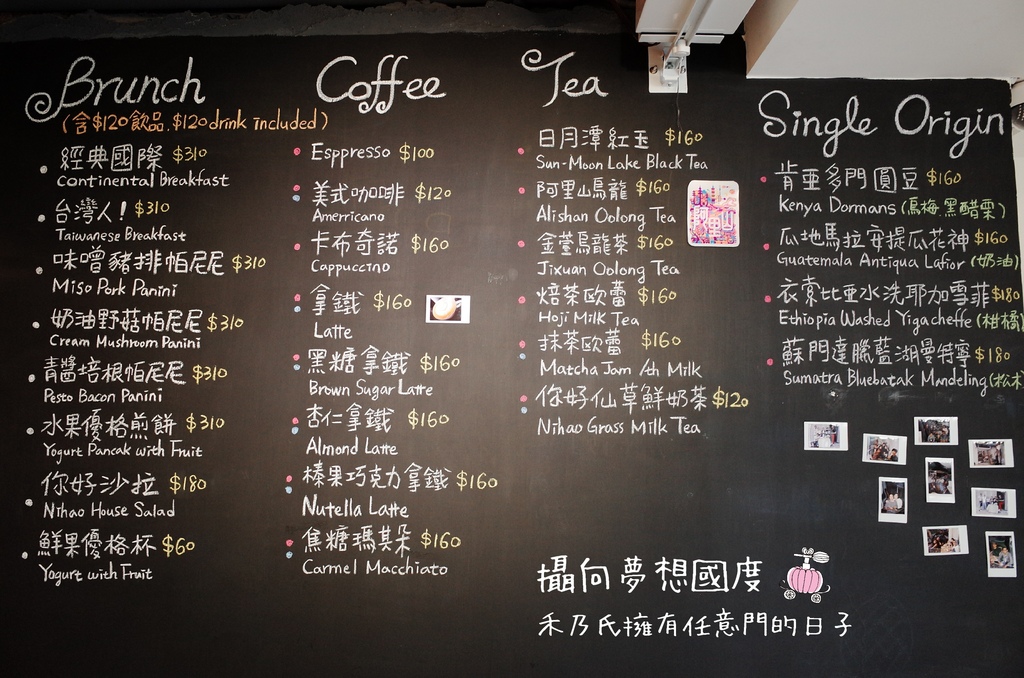 Brunch
(含$120飲品.$120drink included)
經典國際 $310
Continental Breakfast
台灣人! $310
Taiwanese Breakfast
味噌豬排帕尼尼 $310
Miso Pork Panini
奶油野菇帕尼尼 $310
Cream Mushroom Panini
青醬培根帕尼尼 $310
Pesto Bacon Panini
水果優格煎餅 $310
Yogurt Pancak with Fruit
你好沙拉 $180
Nihao House Salad
鮮果優格杯 $60
Yogurt with Fruit
Coffee
Esppresso $100
美式咖啡 $120
Amerricano
卡布奇諾 $160
Cappuccino
拿鐵 $160
Latte
黑糖拿鐵 $160
Brown Sugar Latte
杏仁拿鐵 $160
Almond Latte
榛果巧克力拿鐵 $160
Nutella Latte
焦糖瑪其朵 $160
Carmel Macchiato
Tea
日月潭紅玉 $160
Sun-Moon Lake Black Tea
阿里山烏龍 $160
Alishan Oolong Tea
金萱烏龍茶 $160
Jixuan Oolong Tea
焙茶歐蕾 $160
Hoji Milk Tea
抹茶歐蕾 $160
Matcha Jam Ah Milk
你好仙草鮮奶茶 $120
Nihao Grass Milk Tea
阿里山
Single Origin
肯亞多門圓豆 $160
Kenya Dormans (烏梅.黑醋栗)
瓜地馬拉安提瓜花神 $160
Guatemala Antiqua Lafior (奶油)
衣索比亞水洗耶加雪菲 $180
Ethiopia Washed Yigacheffe (柑橘)
蘇門達臘藍湖曼特寧 $180
Sumatra Bluebatak Mandeling (松木
攝向夢想國度
禾乃氏擁有任意門的日子